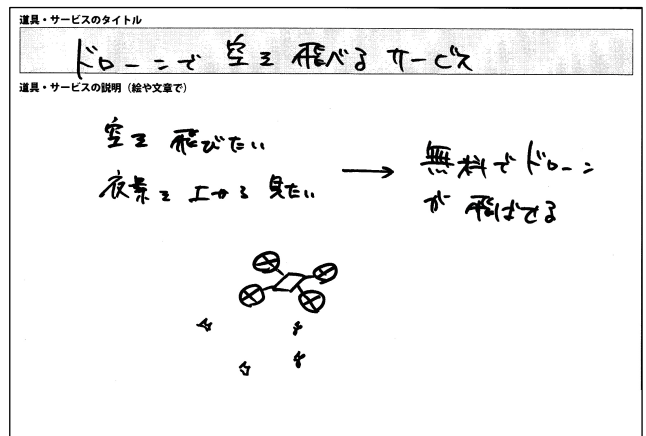 道具・サービスのタイトル
ドローンで空を飛べるサービス
道具・サービスの説明（絵や文章で）
空を飛びたい
夜景を上から見たい
→
無料でドローン
が飛ばせる